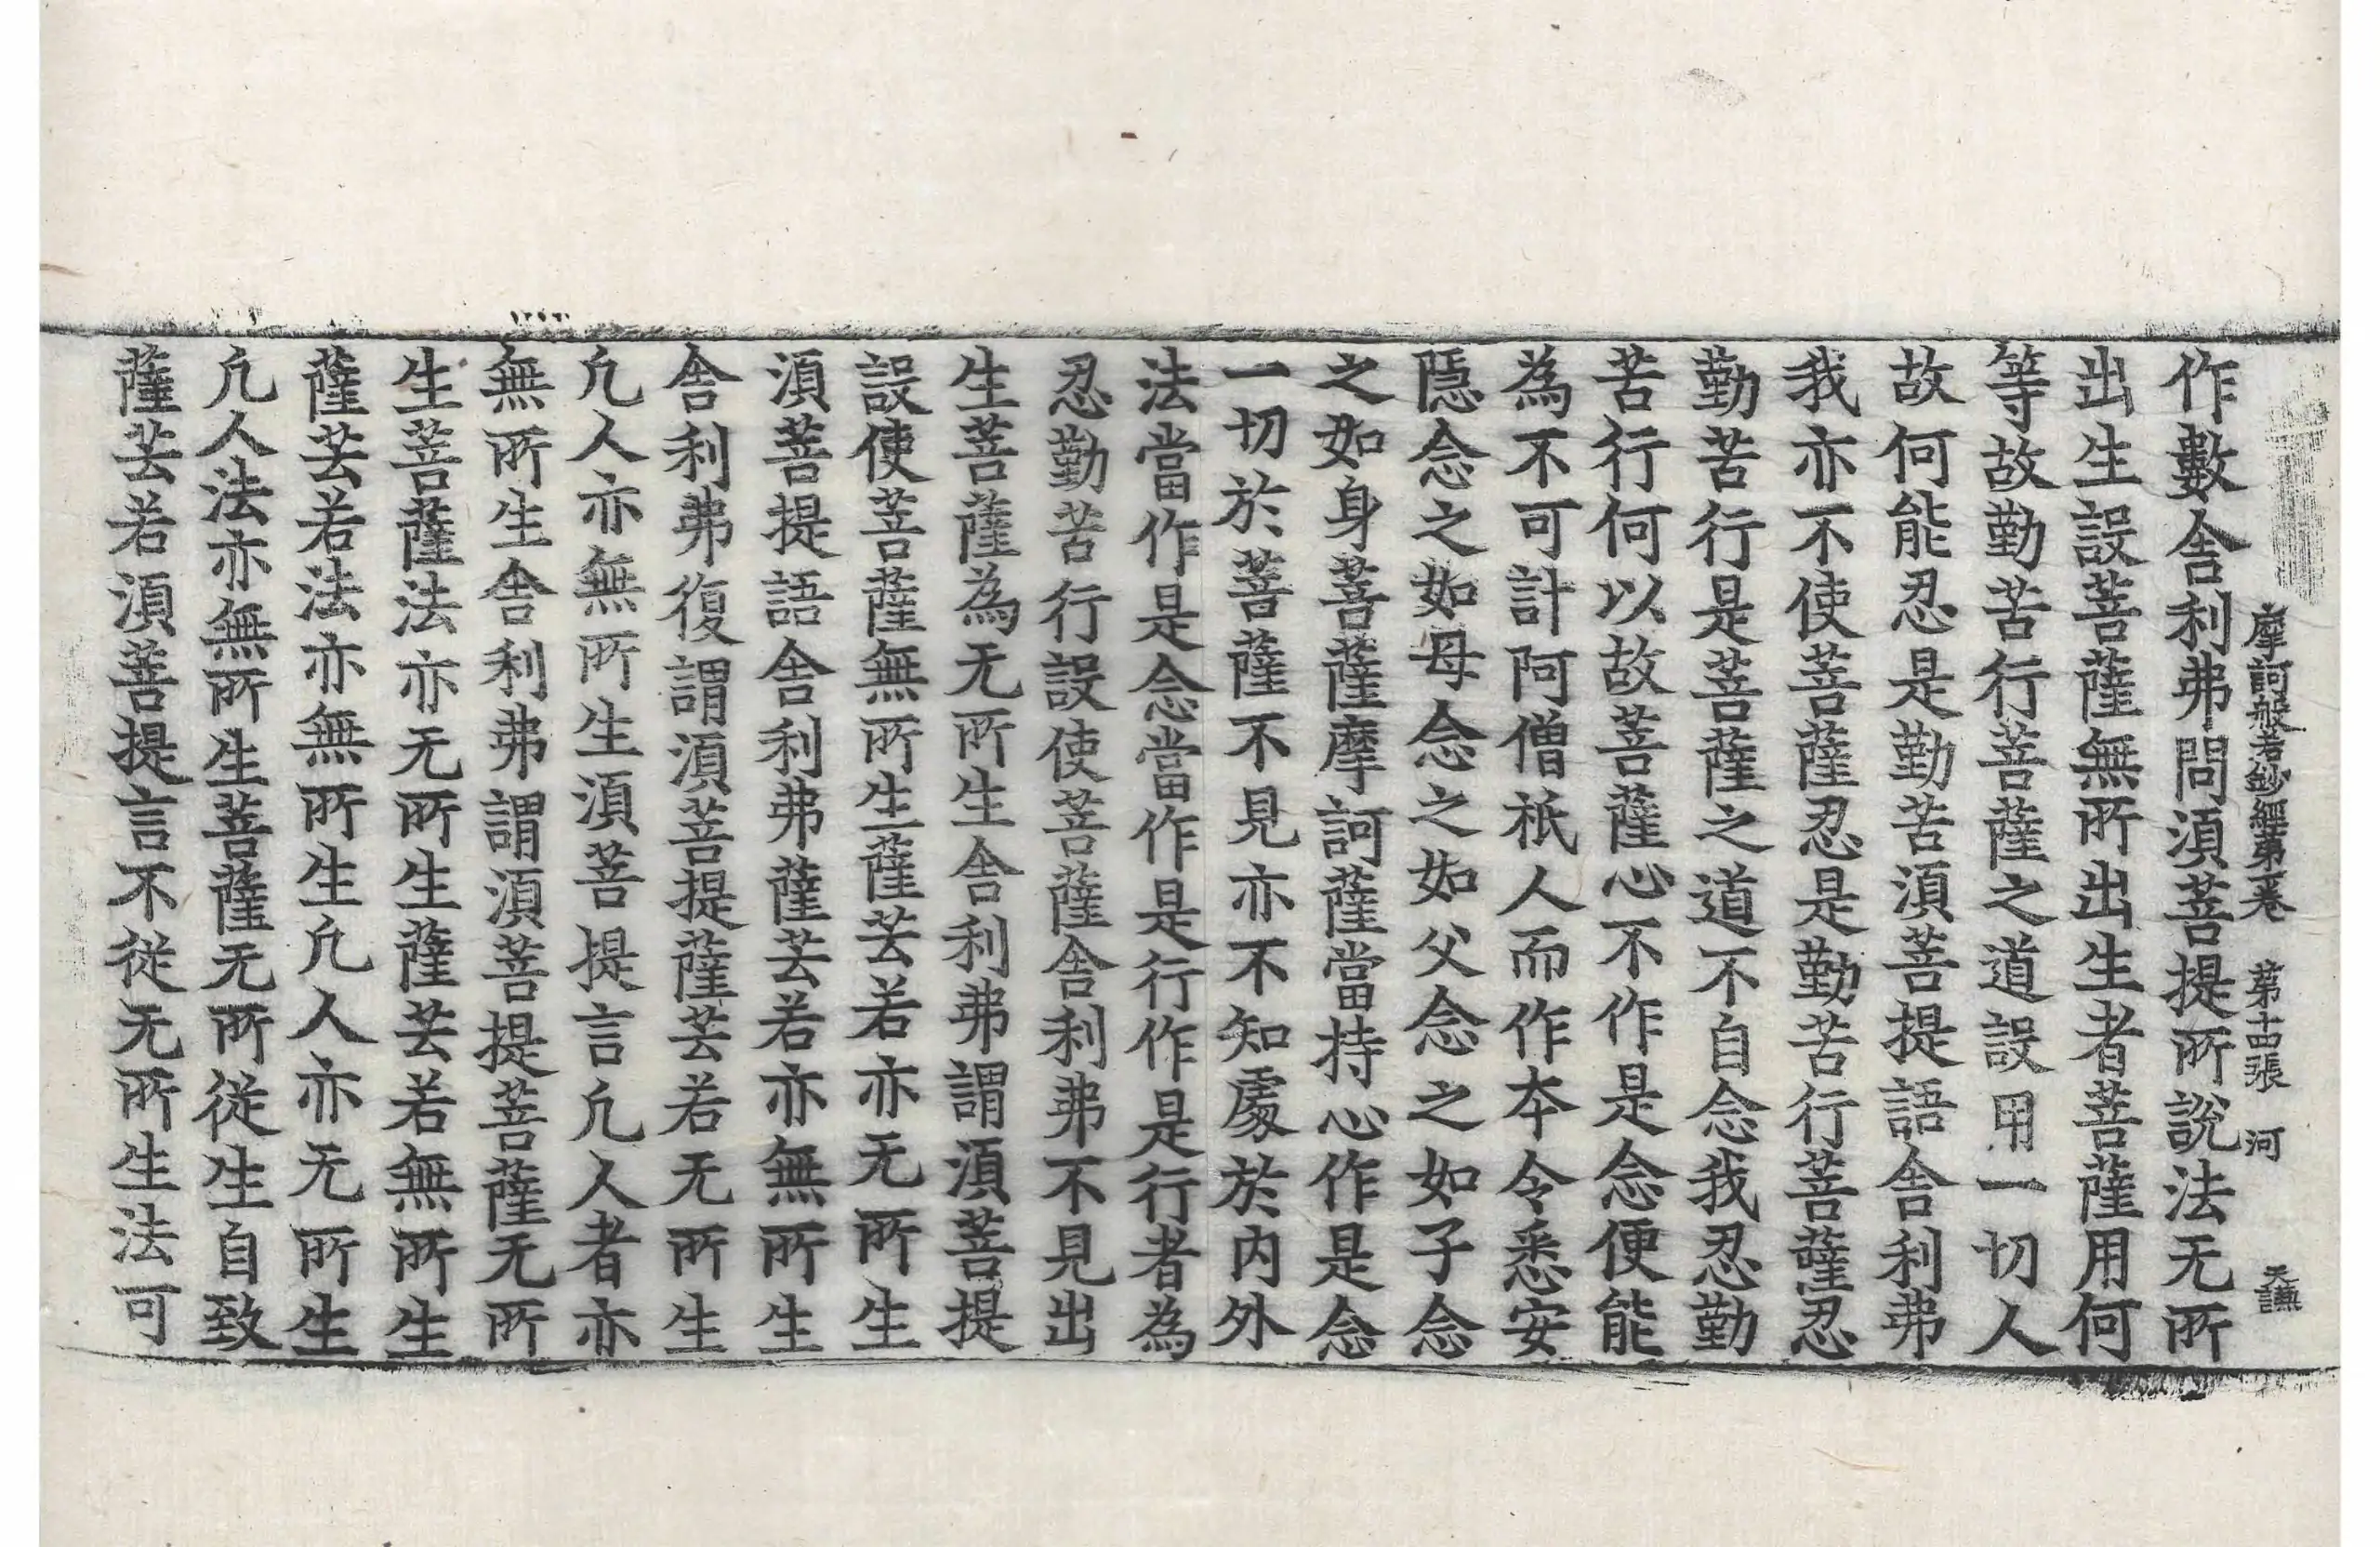 摩訶般若鈔經第一卷　第十四張　河　天譕
作數舎利弗問湏菩提所說法无所
出生設菩薩無所出生者菩薩用何
等故勤苦行菩薩之道設用一切人
故何能忍是勤苦湏菩提語舎利弗
我亦不使菩薩忍是勤苦行菩薩忍
勤苦行是菩薩之道不自念我忍勤
苦行何以故菩薩心不作是念便能
為不可計阿僧祇人而作夲令悉安
隠念之如母念之如父念之如子念
之如身菩薩摩訶薩當持心作是念
一切於菩薩不見亦不知處於内外
法當作是念當作是行作是行者為
忍勤苦行設使菩薩舎利弗不見出
生菩薩為无所生舎利弗謂湏菩提
設使菩薩無所生薩芸若亦无所生
湏菩提語舎利弗薩芸若亦無所生
舎利弗復謂湏菩提薩芸若无所生
凢人亦無所生湏菩提言凢人者亦
無所生舎利弗謂湏菩提菩薩无所
生菩薩法亦无所生薩芸若無所生
薩芸若法亦無所生凢人亦无所生
凢人法亦無所生菩薩无所從生自致
薩芸若湏菩提言不從无所生法可